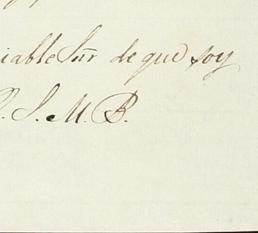 iable Sūr de que soy
Q. S. M. B.